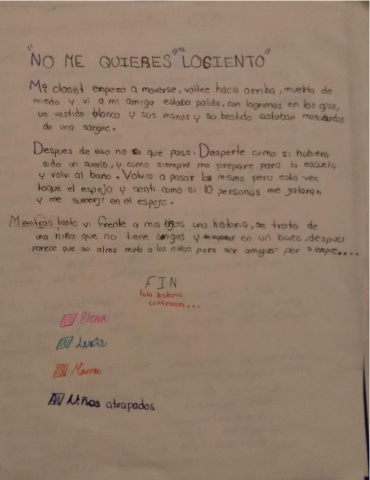 "NO ME QUIEBES" "LOSIENTO"
Mi closet empeso a moverse, voltee haca arriba, muerta de
miedo y vi a mi amiga estaba palida, con lagrimas en los ojos,
un vestido blanco y sus manos y su bestido estaban manchados
de una sangre.
Despues de eso no se que paso. Desperte como si hubiera
sido un sueño, y como siempre me prepare para la escuela
y volvi al baño. Volvio a pasar lo mismo pero esta vez
toque el espejo y senti como si 10 personas me jalaran
y me sumergi en el espejo.
Mientras tanto vi frente a mis ojos una historia, se trata de
una niña que no tiene amigos y en un baño, despues
parece que su alma mato a los niños para ser amigos por siempre....
FIN
Esta historia
continuara...
Elena
Lucia
Mama
Niños atrapados